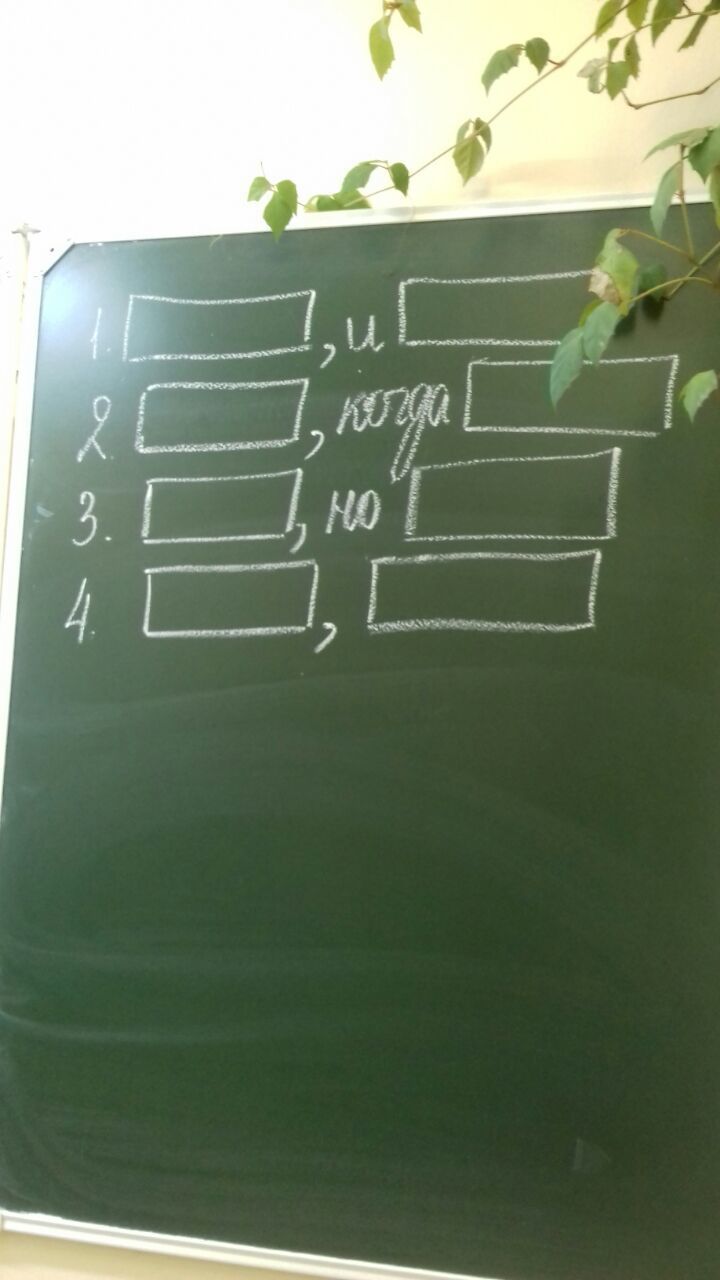 1. , и
2. , когда
3. , но
4. ,